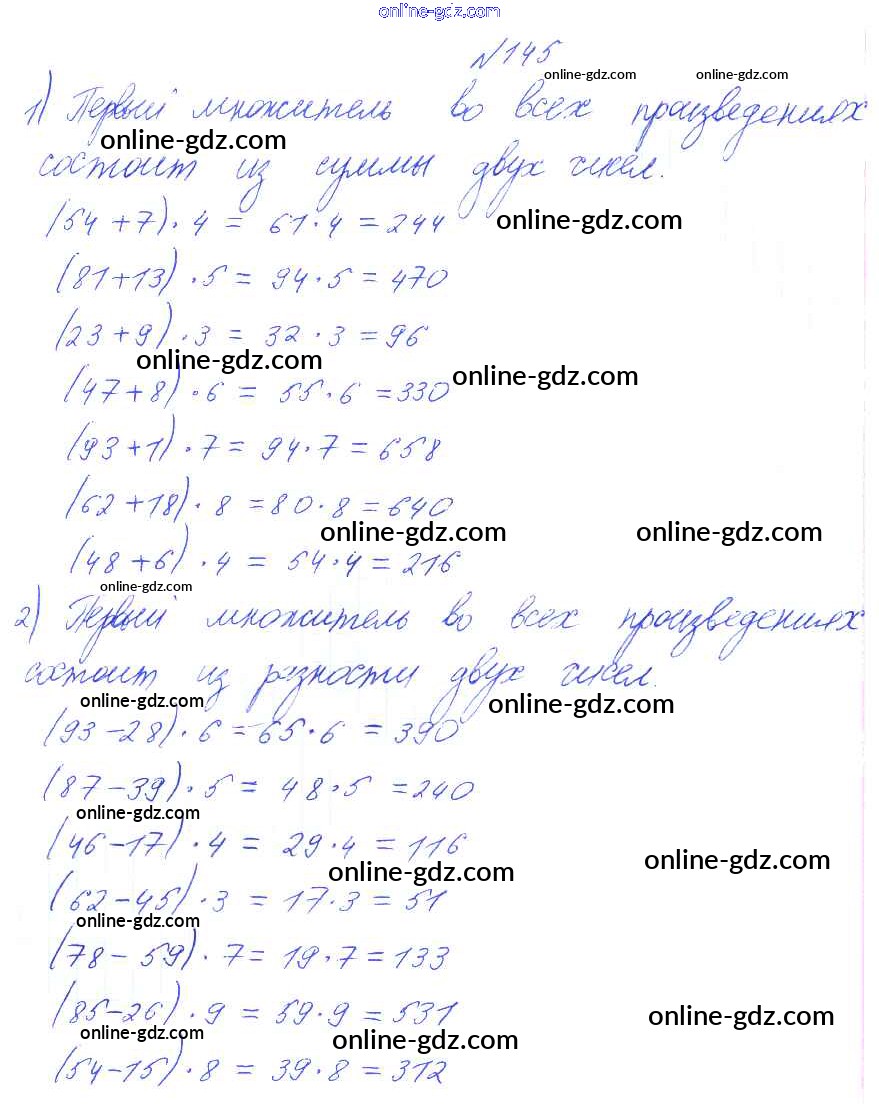 online-gdz.com
№145
online-gdz.com online-gdz.com
1) Первый множитель во всех произведениях
online-gdz.com
состоит из суммы двух чисел.
(54+7)·4 = 61·4 = 244
online-gdz.com
(81+13)·5 = 94·5 = 470
(23+9)·3 = 32·3 = 96
online-gdz.com
online-gdz.com
(47+8)·6 = 55·6 = 330
(93+1)·7 = 94·7 = 658
(62+18)·8 = 80·8 = 640
online-gdz.com online-gdz.com
(48+6)·4 = 54·4 = 216
online-gdz.com
2) Первый множитель во всех произведениях
состоит из разности двух чисел.
online-gdz.com online-gdz.com
(93-28)·6 = 65·6 = 390
(87-39)·5 = 48·5 = 240
online-gdz.com
(46-17)·4 = 29·4 = 116
online-gdz.com online-gdz.com
(62-45)·3 = 17·3 = 51
online-gdz.com
(78-59)·7 = 19·7 = 133
(85-26)·9 = 59·9 = 531
online-gdz.com online-gdz.com online-gdz.com
(54-15)·8 = 39·8 = 312